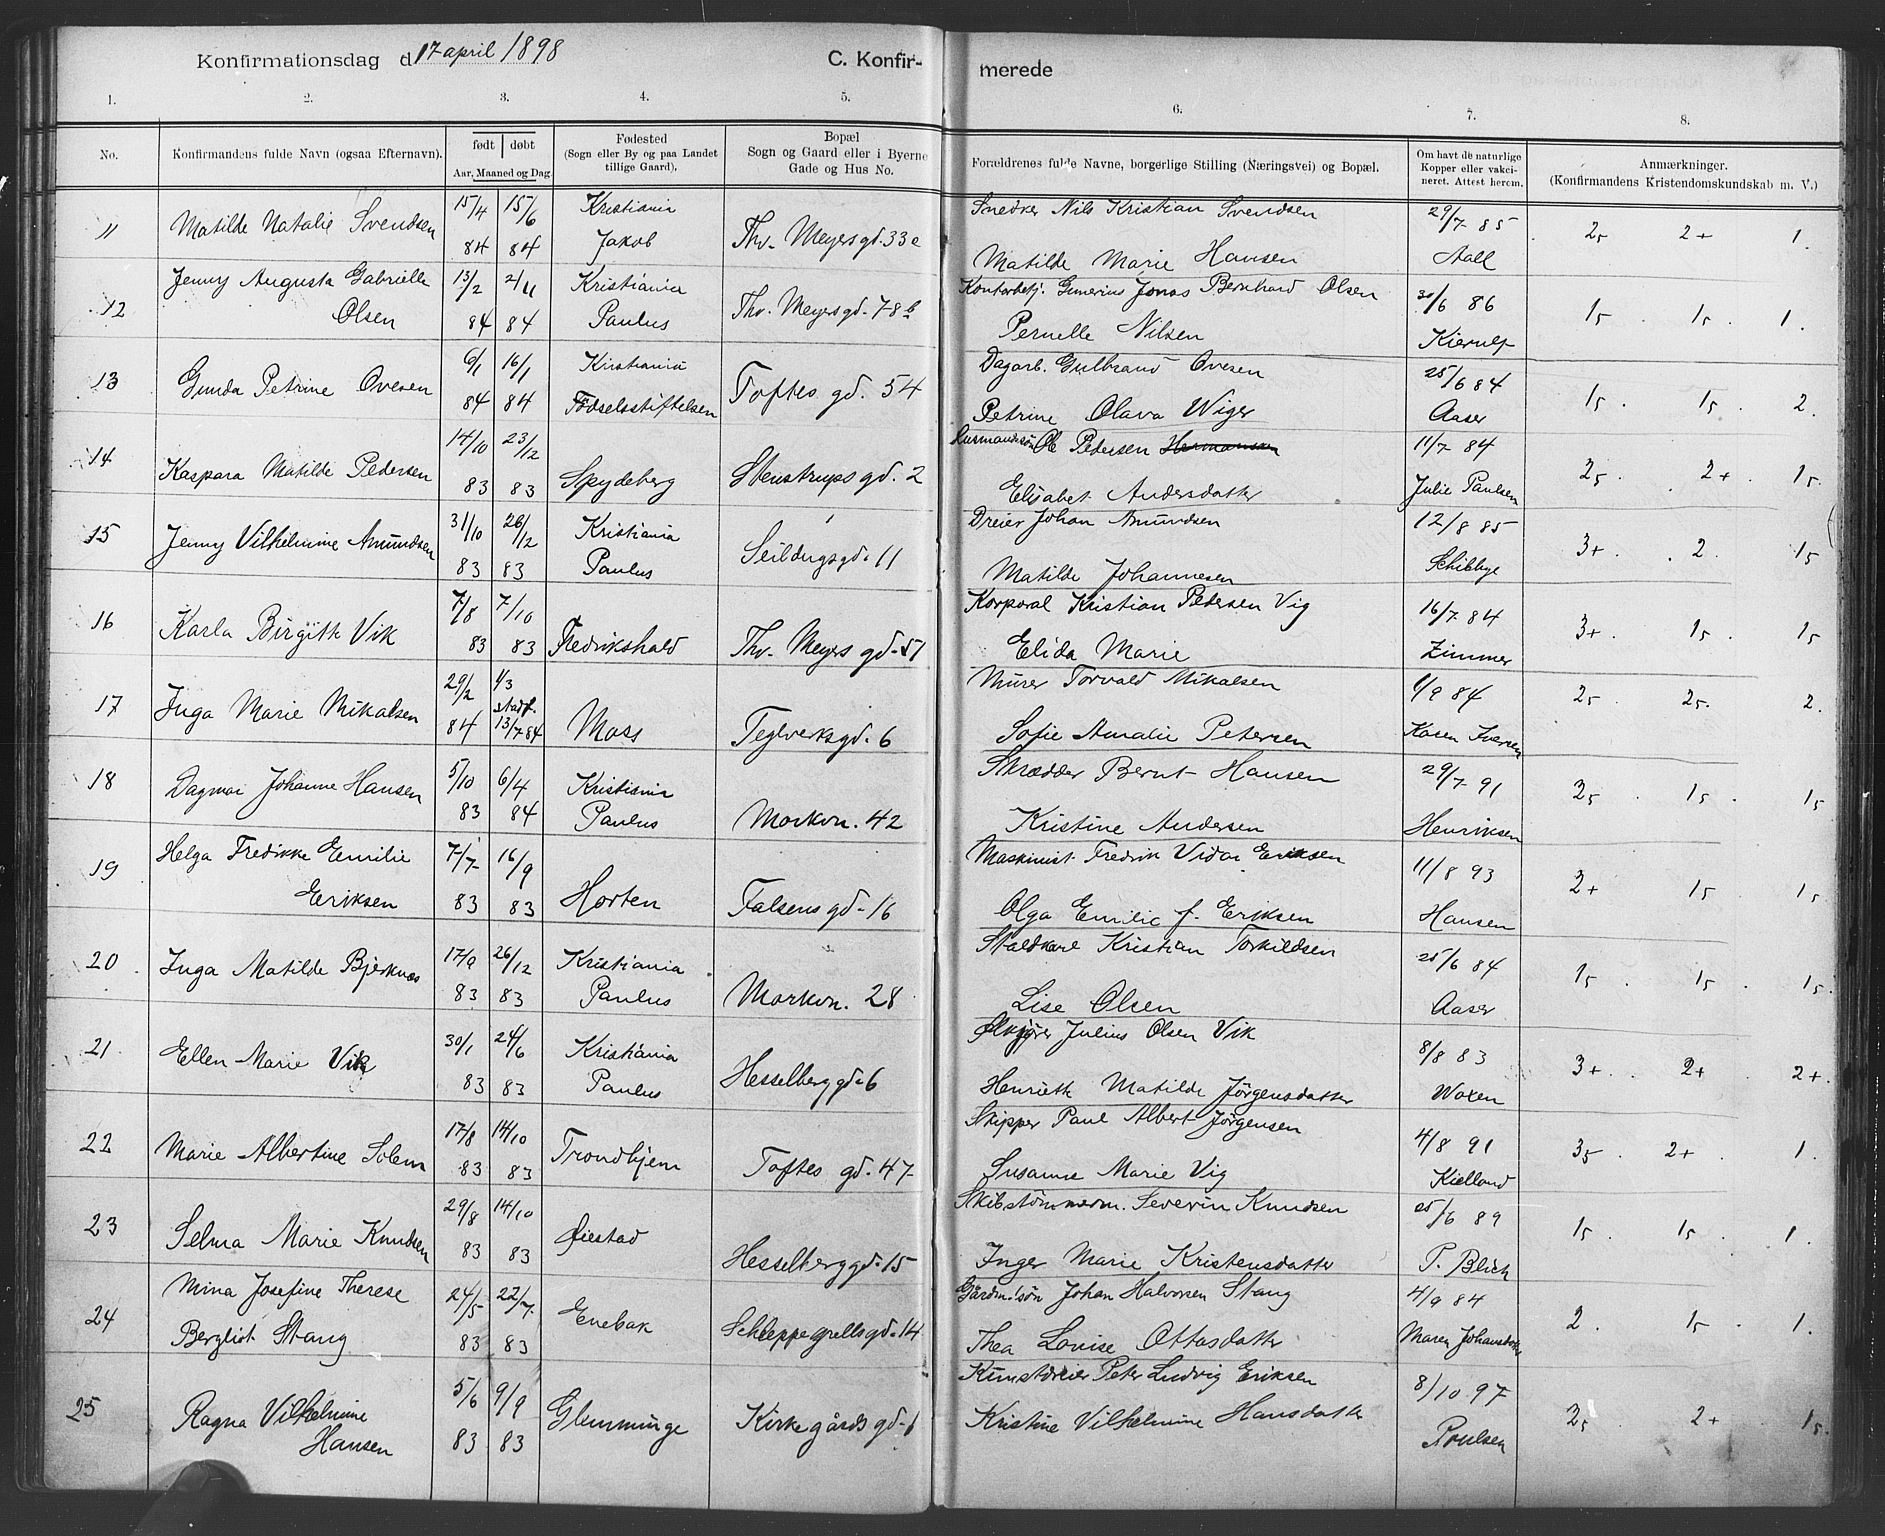 Konfirmationsdag d. 17 april 1898
C. Konfirmerede
1. 2. 3. 4. 5. 6. 7. 8.
No. Konfirmandens fulde Navn (ogsaa Efternavn). født døbt Aar, Maaned og Dag. Fødested (Sogn eller By og paa Landet tillige Gaard). Bopæl Sogn og Gaard eller i Byerne Gade og Hus No. Forældrenes fulde Navne, borgerlige Stilling (Næringsvei) og Bopæl. Om havt de naturlige Kopper eller vaccineret. Attest herom. Anmærkninger. (Konfirmandens Kristendomskundskab m. V.)
11 Matilde Natalie Svendsen 15/4 84 15/6 84 Kristiania Jakob Thv. Meyersgd. 33 c
Snedker Nils Kristian Svendsen Matilde Marie Hansen 29/7 85 Aall 25 2+ 1.
12 Jenny Augusta Gabrielle Olsen 13/2 84 2/11 84 Kristiania Paulus Thv. Meyersgd. 78 b
Kontorbetj. Gunerius Jonas Bernhard Olsen Pernelle Nilsen 30/6 86 Kierulf 15 15 1.
13 Gunda Petrine Ovesen 6/1 84 16/1 84 Kristiania Fødselsstiftelsen Toftes gd. 54
Dagarb. Gulbrand Ovesen Petrine Olava Wiger 25/6 84 Aaser 15 15 2.
14 Kaspara Matilde Pedersen 14/10 83 23/12 83 Spydeberg Stenstrupsgd. 2
Husmandssøn Ole Pedersen Hermansen Elisabet Andersdatter 11/7 84 Julie Paulsen 25 2+ 15
15 Jenny Vilhelmine Amundsen 31/10 83 26/12 83 Kristiania Paulus Seildugsgd. 11
Dreier Johan Amundsen Matilde Johannesen 12/8 85 Schibbye 3+ 2 15
16 Karla Birgitte Vik 7/8 83 7/10 83 Fredrikshald Thv. Meyers gd. 51
Korporal Kristian Pedersen Vig Elida Marie 16/7 84 Zimmer 3+ 15 15
17 Inga Marie Mikalsen 29/2 84 4/3 stadf. 13/7 84 Moss Teglverksgd. 6
Murer Torvald Mikalsen Sofie Amalie Petersen 1/9 84 Karen Iversen 25 25 2.
18 Dagmar Johanne Hansen 5/10 83 6/4 84 Kristiania Paulus Markvn. 42
Skrædder Bernt Hansen Kristine Andersen 29/7 91 Henriksen 25 15 15
19 Helga Fredikke Emilie Eriksen 7/7 83 16/9 83 Horten Falsensgd. 16
Maskinist Fredrik Vidar Eriksen Olga Emilie f. Eriksen 11/8 93 Hansen 2+ 15 15
20 Inga Matilde Bjerknæs 17/9 83 26/12 83 Kristiania Paulus Markvn. 28
Staldkarl Kristian Torkildsen Lise Olsen 25/6 84 Aaser 15 15 15
21 Ellen Marie Vik 30/1 83 24/6 83 Kristiania Paulus Hesselberggd. 6
Julius Olsen Vik Henriette Matilde Jörgensdatter 8/8 83 Woxen 3+ 2+ 2+
22 Marie Albertine Solem 17/8 83 14/10 83 Trondhjem Toftes gd. 47
Skipper Paul Albert Jørgensen Susanne Marie Vig 4/8 91 Kielland 35 2+ 1.
23 Selma Marie Knudsen 29/8 83 14/10 83 Øiestad Hesselberggd. 15
Skibstømmerm. Severin Knudsen Inger Marie Kristensdatter 25/6 89 P. Blich 15 15 1.
24 Mina Josefine Therese Bergliot Stang 24/5 83 22/7 83 Enebak Schleppegrellsgd. 14
Gårdm.søn Johan Halvorsen Stang Thea Lovise Ottosdatter 4/9 84 Maren Johansdatter 2 15 1.
25 Ragna Vilhelmine Hansen 5/6 83 9/9 83 Glemminge Kirkegårdsgd. 6
Kunstdreier Peter Ludvig Eriksen Kristine Vilhelmine Hansdatter 8/10 97 Poulsen 25 2+ 15